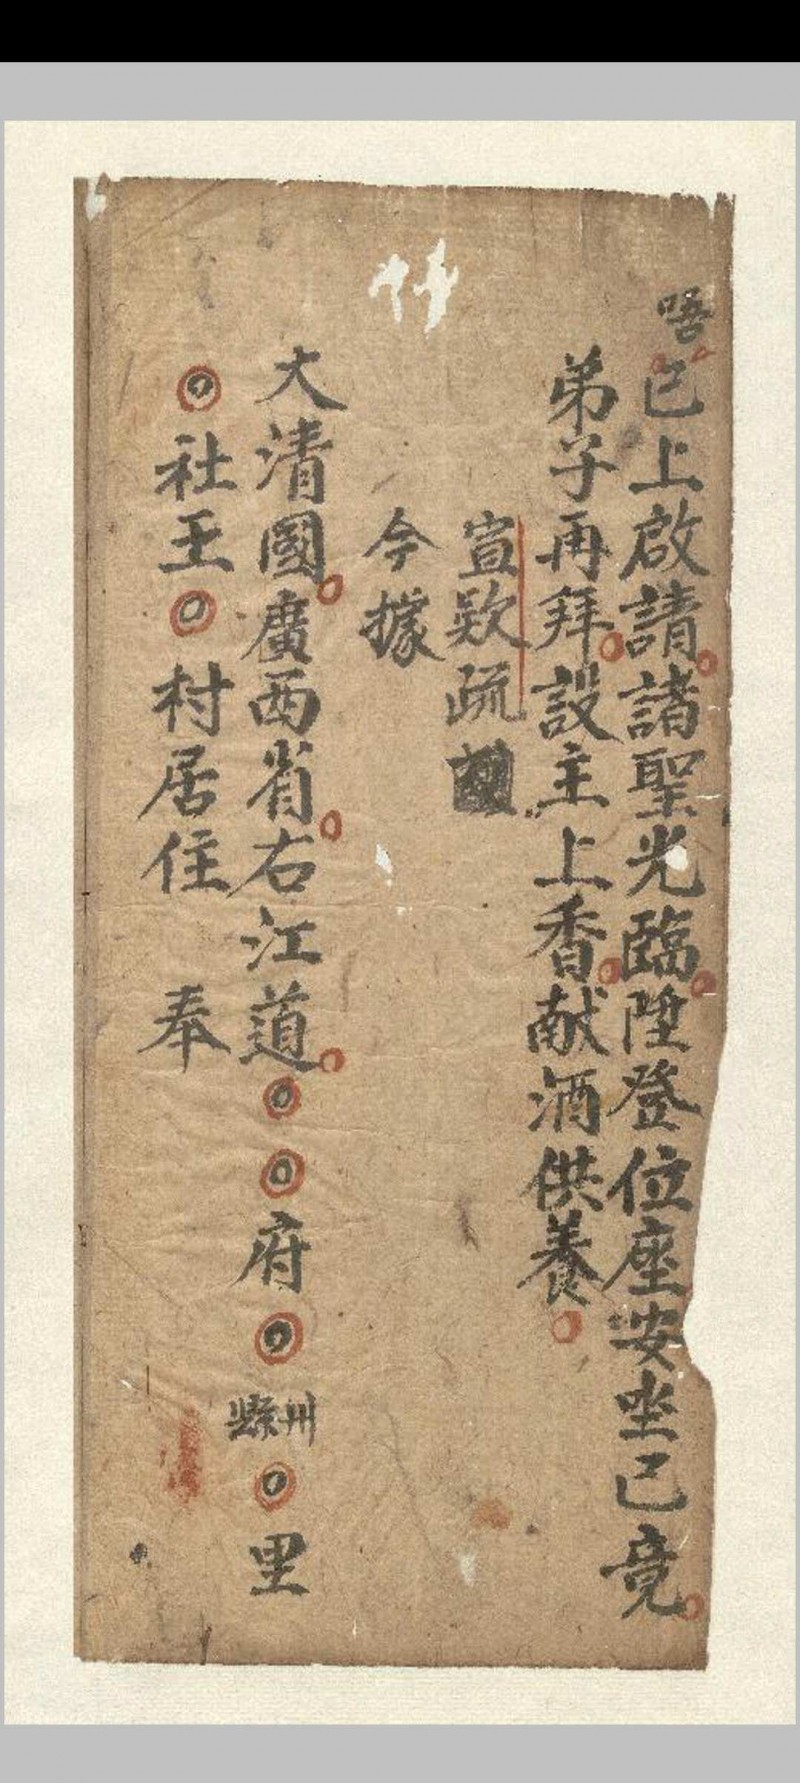 唔
已上啟請諸聖光臨陞登位座安坐已竟
弟子再拜設主上香献酒供養
宣欵疏
今據
大清國廣西省右江道〇〇府〇州縣〇里
〇社王〇村居住　奉